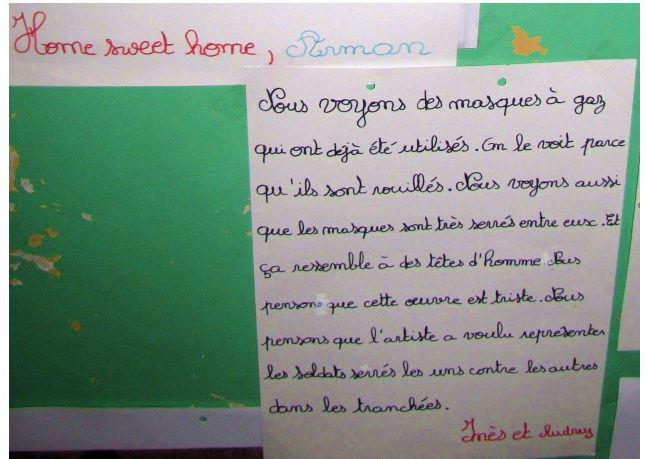 Home sweet home, Arman
Nous voyons des masques à gaz
qui ont déjà été utilisés. On le voit parce
qu'ils sont rouillés. Nous voyons aussi
que les masques sont très serrés entre eux. Et
ça ressemble à des têtes d'homme. Nous
pensons que cette œuvre est triste. Nous
pensons que l'artiste a voulu représenter
les soldats serrés les uns contre les autres
dans les tranchées.
Inès et Audrey